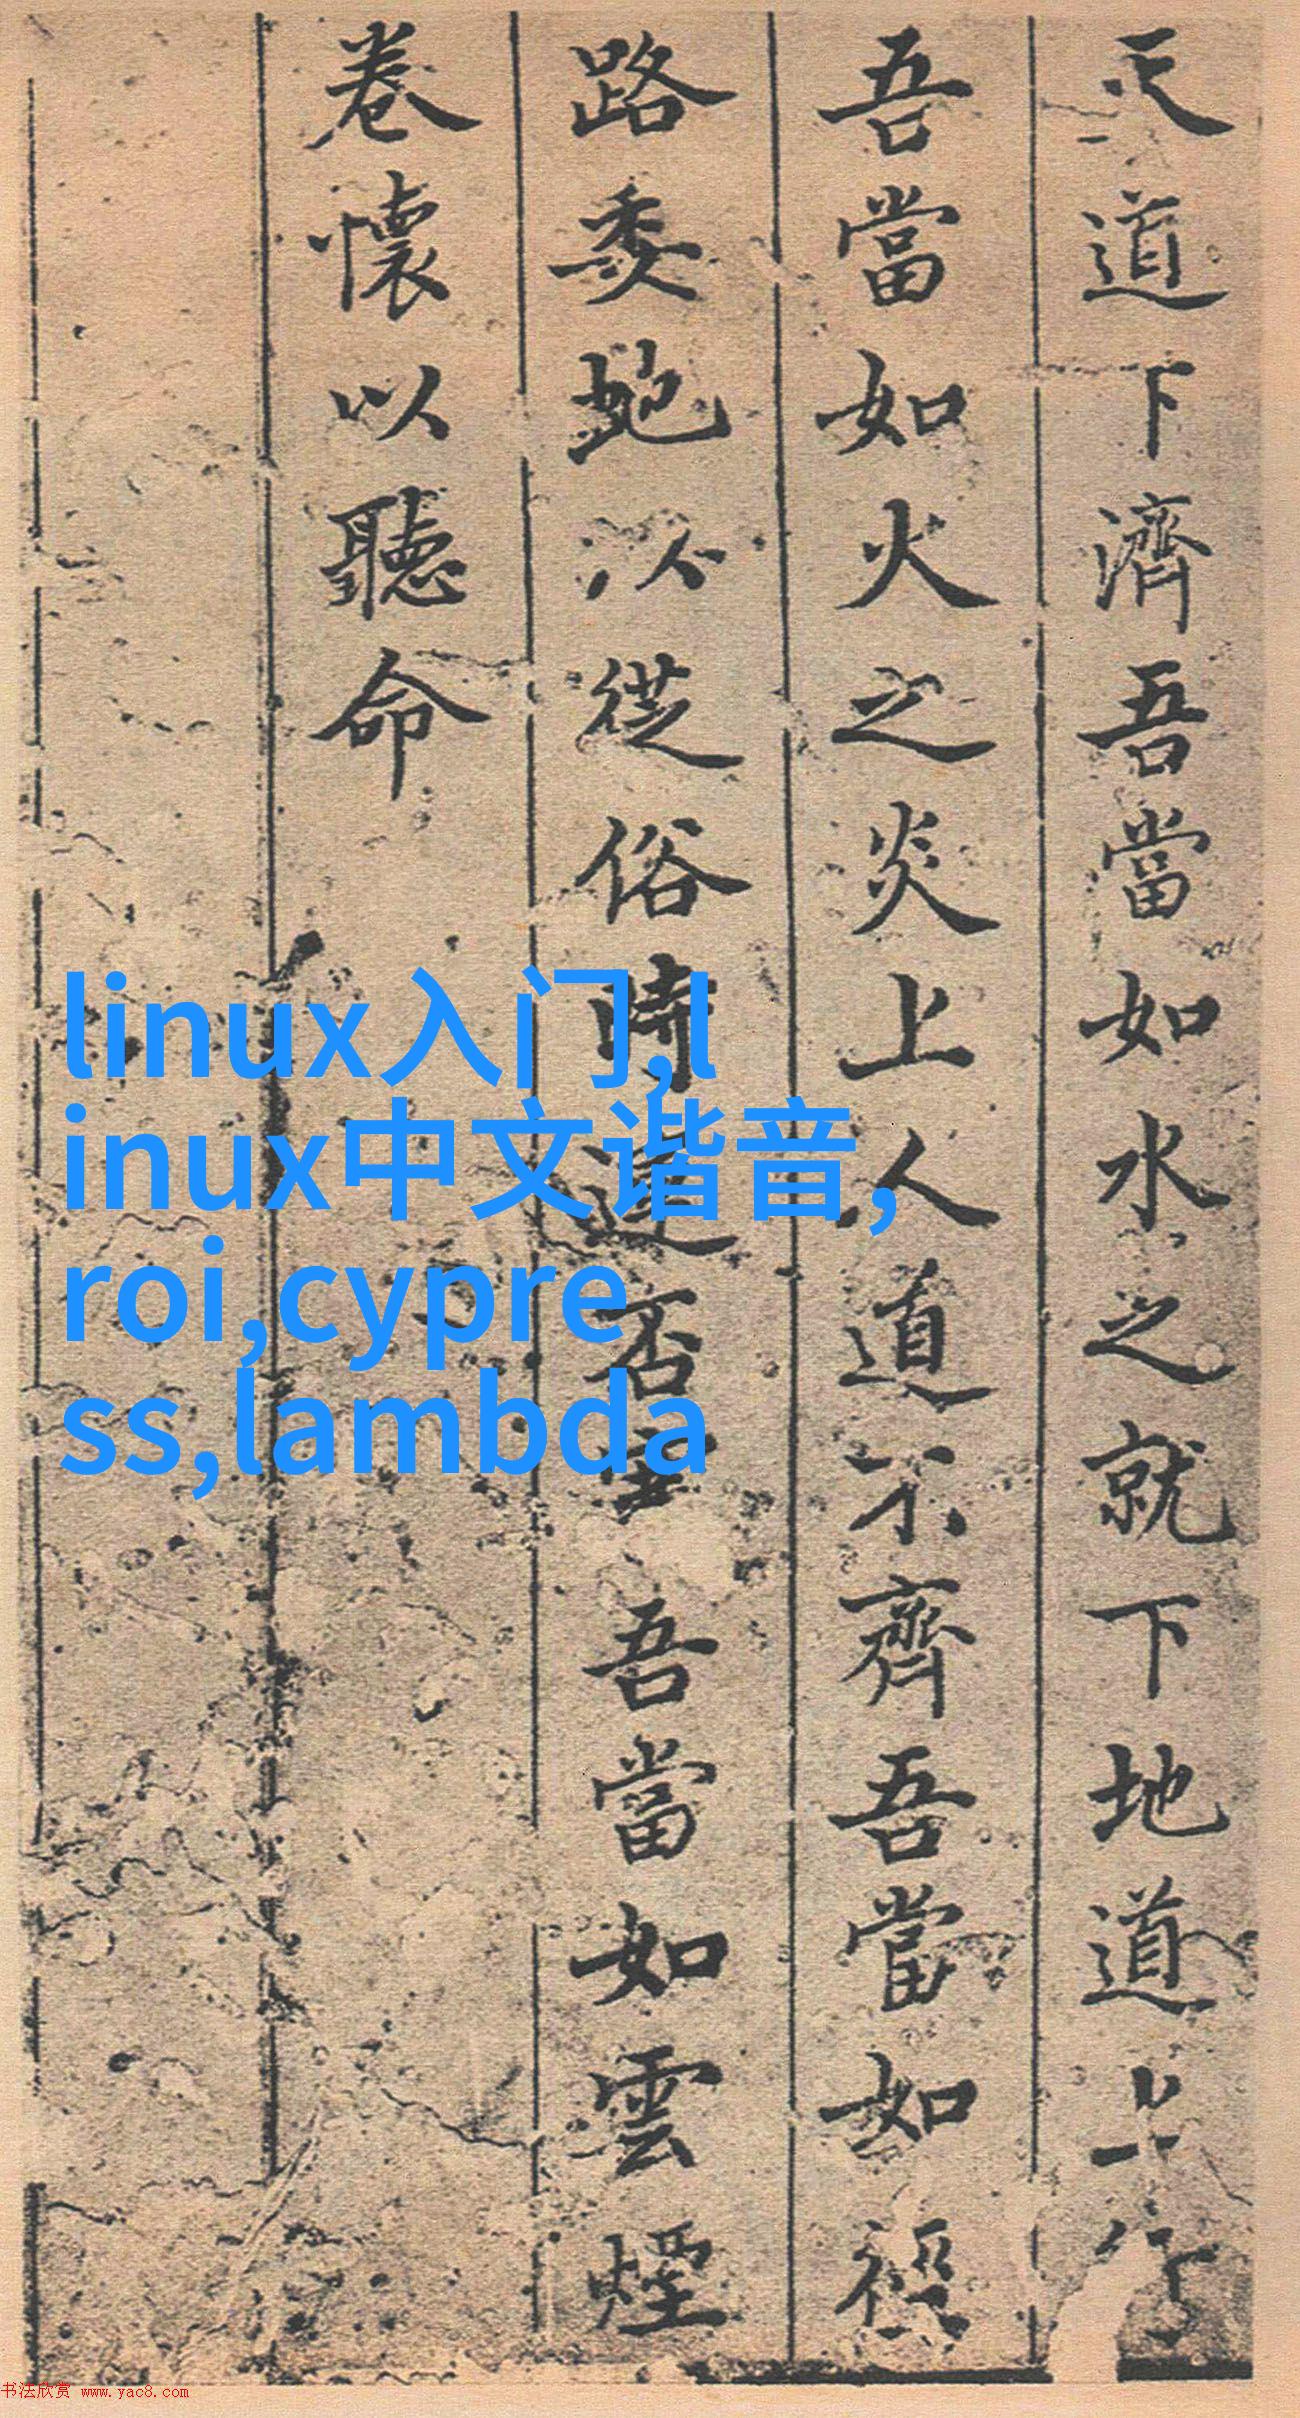 天道下濟吾當如水之就下地道上行
吾當如火之炎上人道不齊吾當如
路委虵以從俗時違否 吾當如雲煙
卷懷以聽命
linux入门,l
inux中文谐音,
roi,cypre
ss,lambda
书法欣赏 www.yac8.com